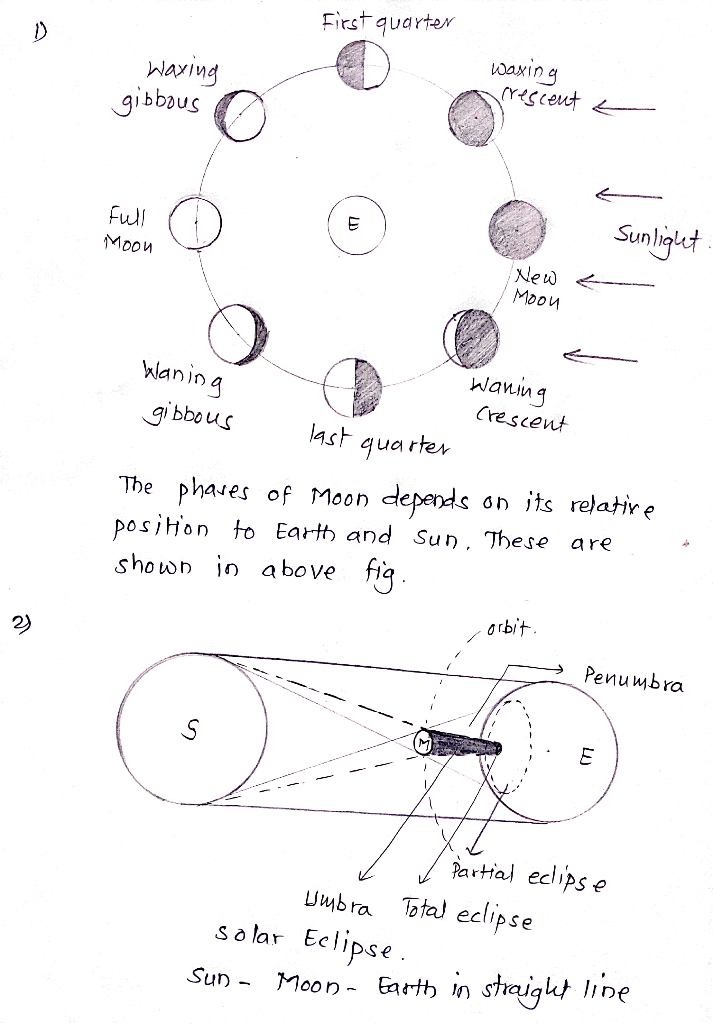 1)
First quarter
Waxing
gibbous
waxing
crescent
Full
Moon
E
Sunlight.
New
Moon
Waning
gibbous
last quarter
Waning
Crescent
The phases of Moon depends on its relative
position to Earth and Sun. These are
shown in above fig.
2)
orbit.
Penumbra
S
M
E
Partial eclipse
Umbra
Total eclipse
solar Eclipse.
Sun - Moon - Earth in straight line